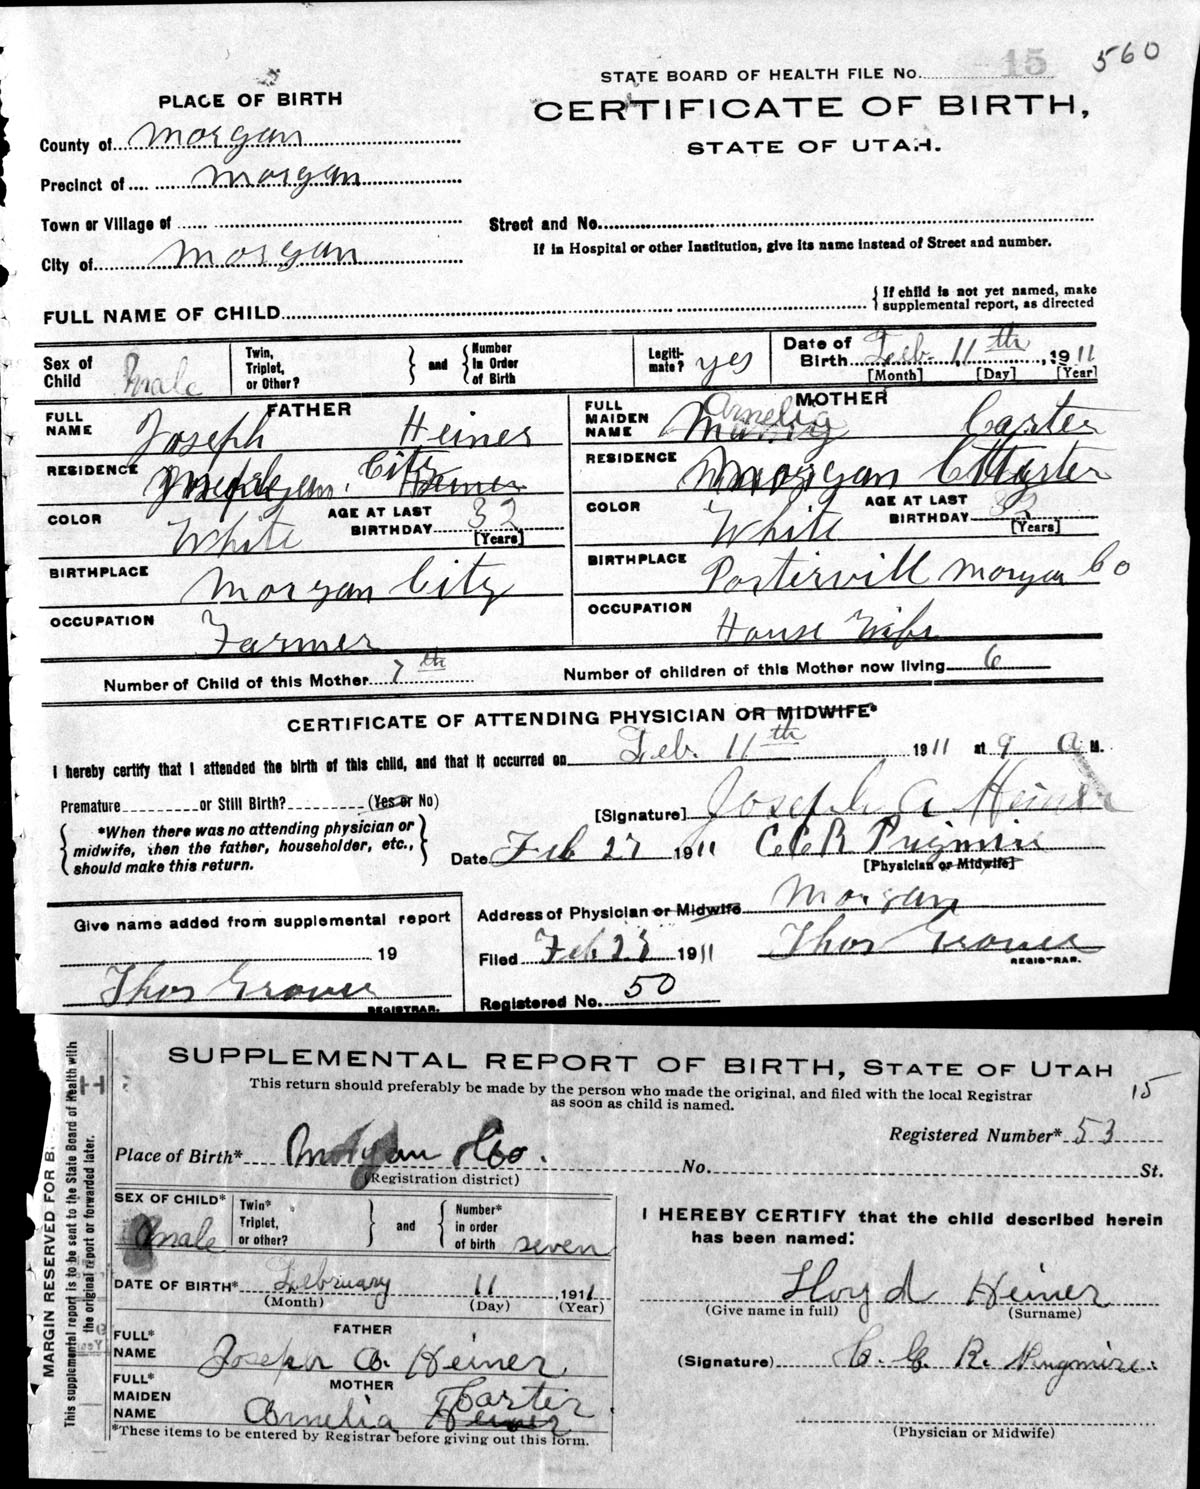 15 560
STATE BOARD OF HEALTH FILE No.
CERTIFICATE OF BIRTH,
STATE OF UTAH.
PLACE OF BIRTH
County of Morgan
Precinct of Morgan
Town or Village of
Street and No.
If in Hospital or other Institution, give its name instead of Street and number.
City of Morgan
FULL NAME OF CHILD
{If child is not yet named, make supplemental report, as directed
Sex of Child Male
Twin, Triplet, or Other? } and { Number in Order of Birth
Legiti-mate? yes
Date of Birth Feb- 11th, 1911
[Month] [Day] [Year]
FATHER
FULL NAME Joseph Heiner
MOTHER
FULL MAIDEN NAME Amelia Carter
RESIDENCE Morgan City
RESIDENCE Morgan City
COLOR White
AGE AT LAST BIRTHDAY 32 [Years]
COLOR White
AGE AT LAST BIRTHDAY 32 [Years]
BIRTHPLACE Morgan City
BIRTHPLACE Portervill Morgan Co
OCCUPATION Farmer
OCCUPATION House Wife
Number of Child of this Mother 7th
Number of children of this Mother now living 6
CERTIFICATE OF ATTENDING PHYSICIAN OR MIDWIFE*
I hereby certify that I attended the birth of this child, and that it occurred on Feb. 11th 1911 at 9 a M.
Premature or Still Birth? (Yes or No)
[Signature] Joseph A Heiner
*When there was no attending physician or midwife, then the father, householder, etc., should make this return.
Date Feb 27 1911 C C R Pugmire
[Physician or Midwife]
Give name added from supplemental report
19
Thos Grover
REGISTRAR.
Address of Physician or Midwife Morgan
Filed Feb 28 1911 Thos Grover
REGISTRAR.
Registered No. 50
MARGIN RESERVED FOR B
This supplemental report is to be sent to the State Board of Health with the original report or forwarded later.
SUPPLEMENTAL REPORT OF BIRTH, STATE OF UTAH
This return should preferably be made by the person who made the original, and filed with the local Registrar
as soon as child is named.
15
Registered Number* 53
Place of Birth* Morgan Co.
(Registration district)
No. St.
SEX OF CHILD* male
Twin* Triplet, or other? } and { Number* in order of birth seven
I HEREBY CERTIFY that the child described herein
has been named:
DATE OF BIRTH* February 11, 1911
(Month) (Day) (Year)
Lloyd Heiner
(Give name in full) (Surname)
FATHER
FULL* NAME Joseph A. Heiner
(Signature) C. C. R. Pugmire.
MOTHER
FULL* MAIDEN NAME Amelia Heiner Carter
*These items to be entered by Registrar before giving out this form.
(Physician or Midwife)